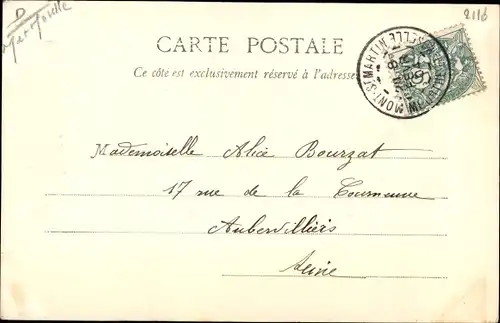 D
2116
CARTE POSTALE
Ce côté est exclusivement réservé à l'adresse
MONT-St MARTIN
Mademoiselle Alice Bourzat
17 rue de la Courneuve
Aubervilliers
Seine